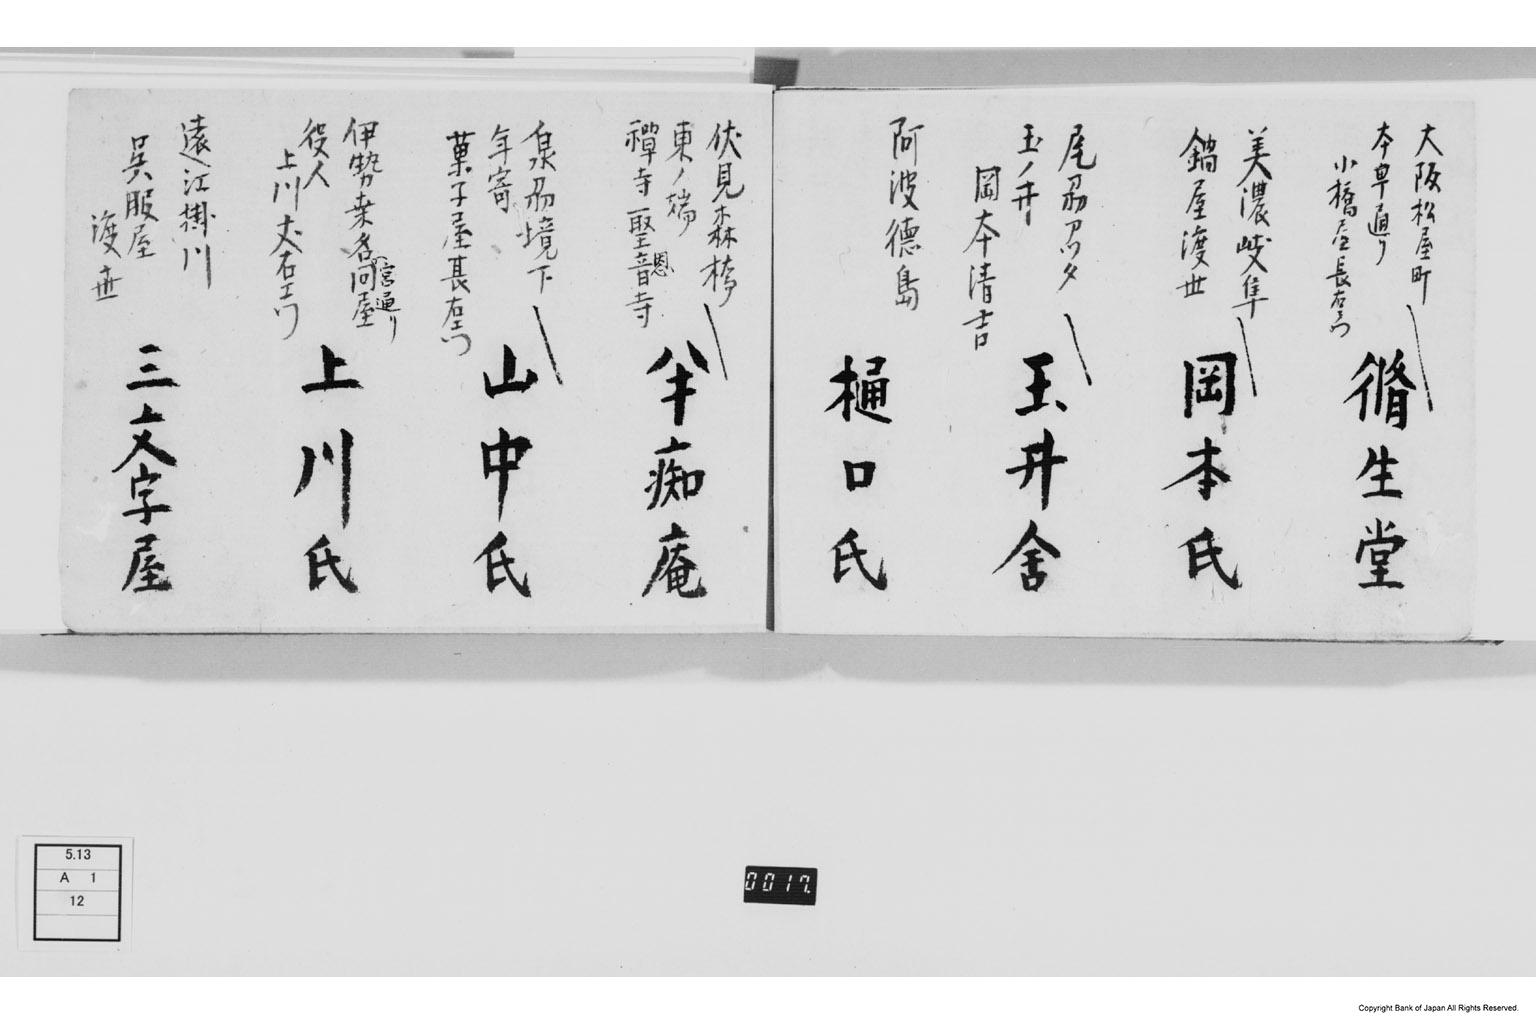 大阪松屋町
本卓通り
小橋屋長右衛門
脩生堂
美濃岐阜
鍋屋渡世
岡本氏
尾刕アツタ
玉ノ井
岡本清吉
玉井舎
阿波徳島
樋口氏
伏見森橋
東ノ端
禅寺聖音寺
恩
半痴庵
泉刕境下
年寄
菓子屋甚右衛門
山中氏
伊勢桑名問屋
宮通り
役人
上川丈右エ門
上川氏
遠江掛川
呉服屋
渡世
三文字屋
5.13
A 1
12
0017.
Copyright Bank of Japan All Rights Reserved.